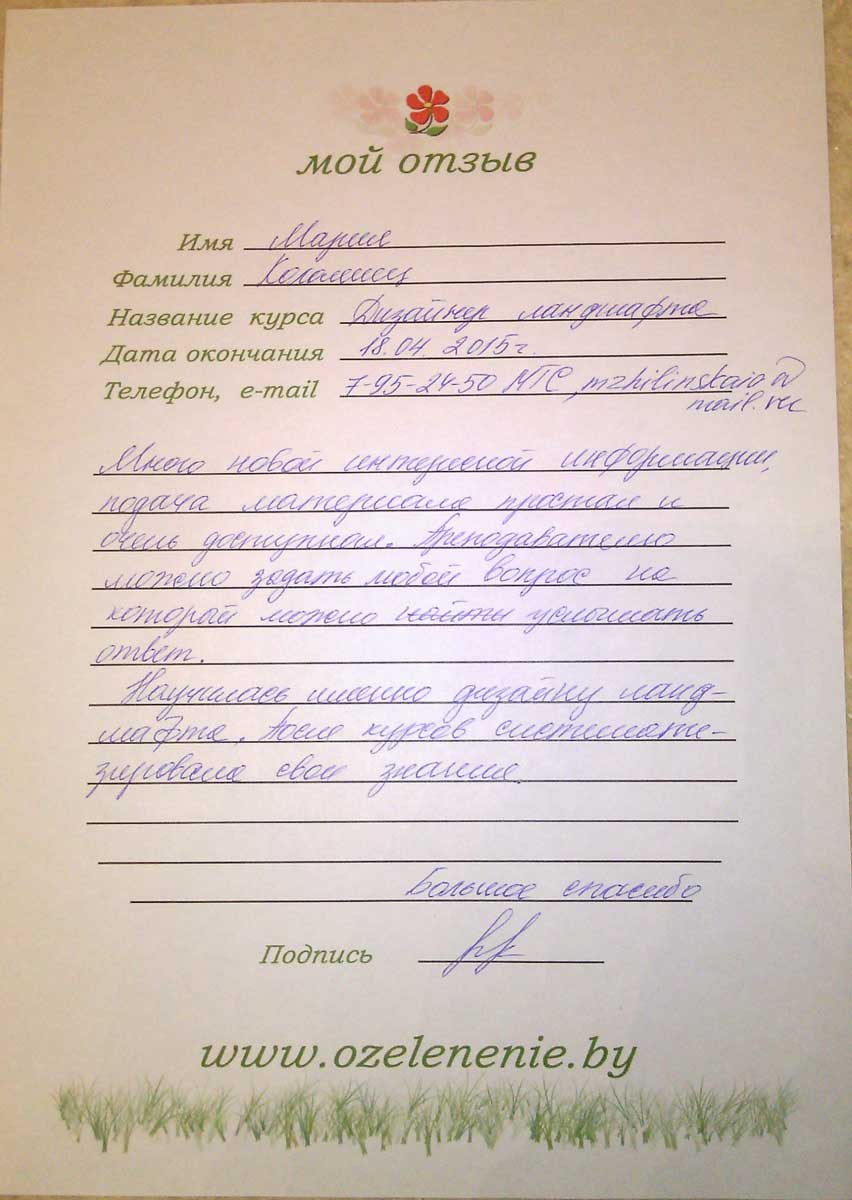 мой отзыв
Имя Мария
Фамилия
Название курса Дизайнер ландшафта
Дата окончания 18.04.2015г.
Телефон, e-mail 7-95-24-50 МТС, mzhilinskaia@
mail.ru
Много новой интересной информации,
подача материала простая и
очень доступная. Преподавателю
можно задать любой вопрос на
который можно найти услышать
ответ.
Научилась именно дизайну ланд-
шафта. После курсов системати-
зировала свои знания.
Большое спасибо
Подпись
www.ozelenenie.by